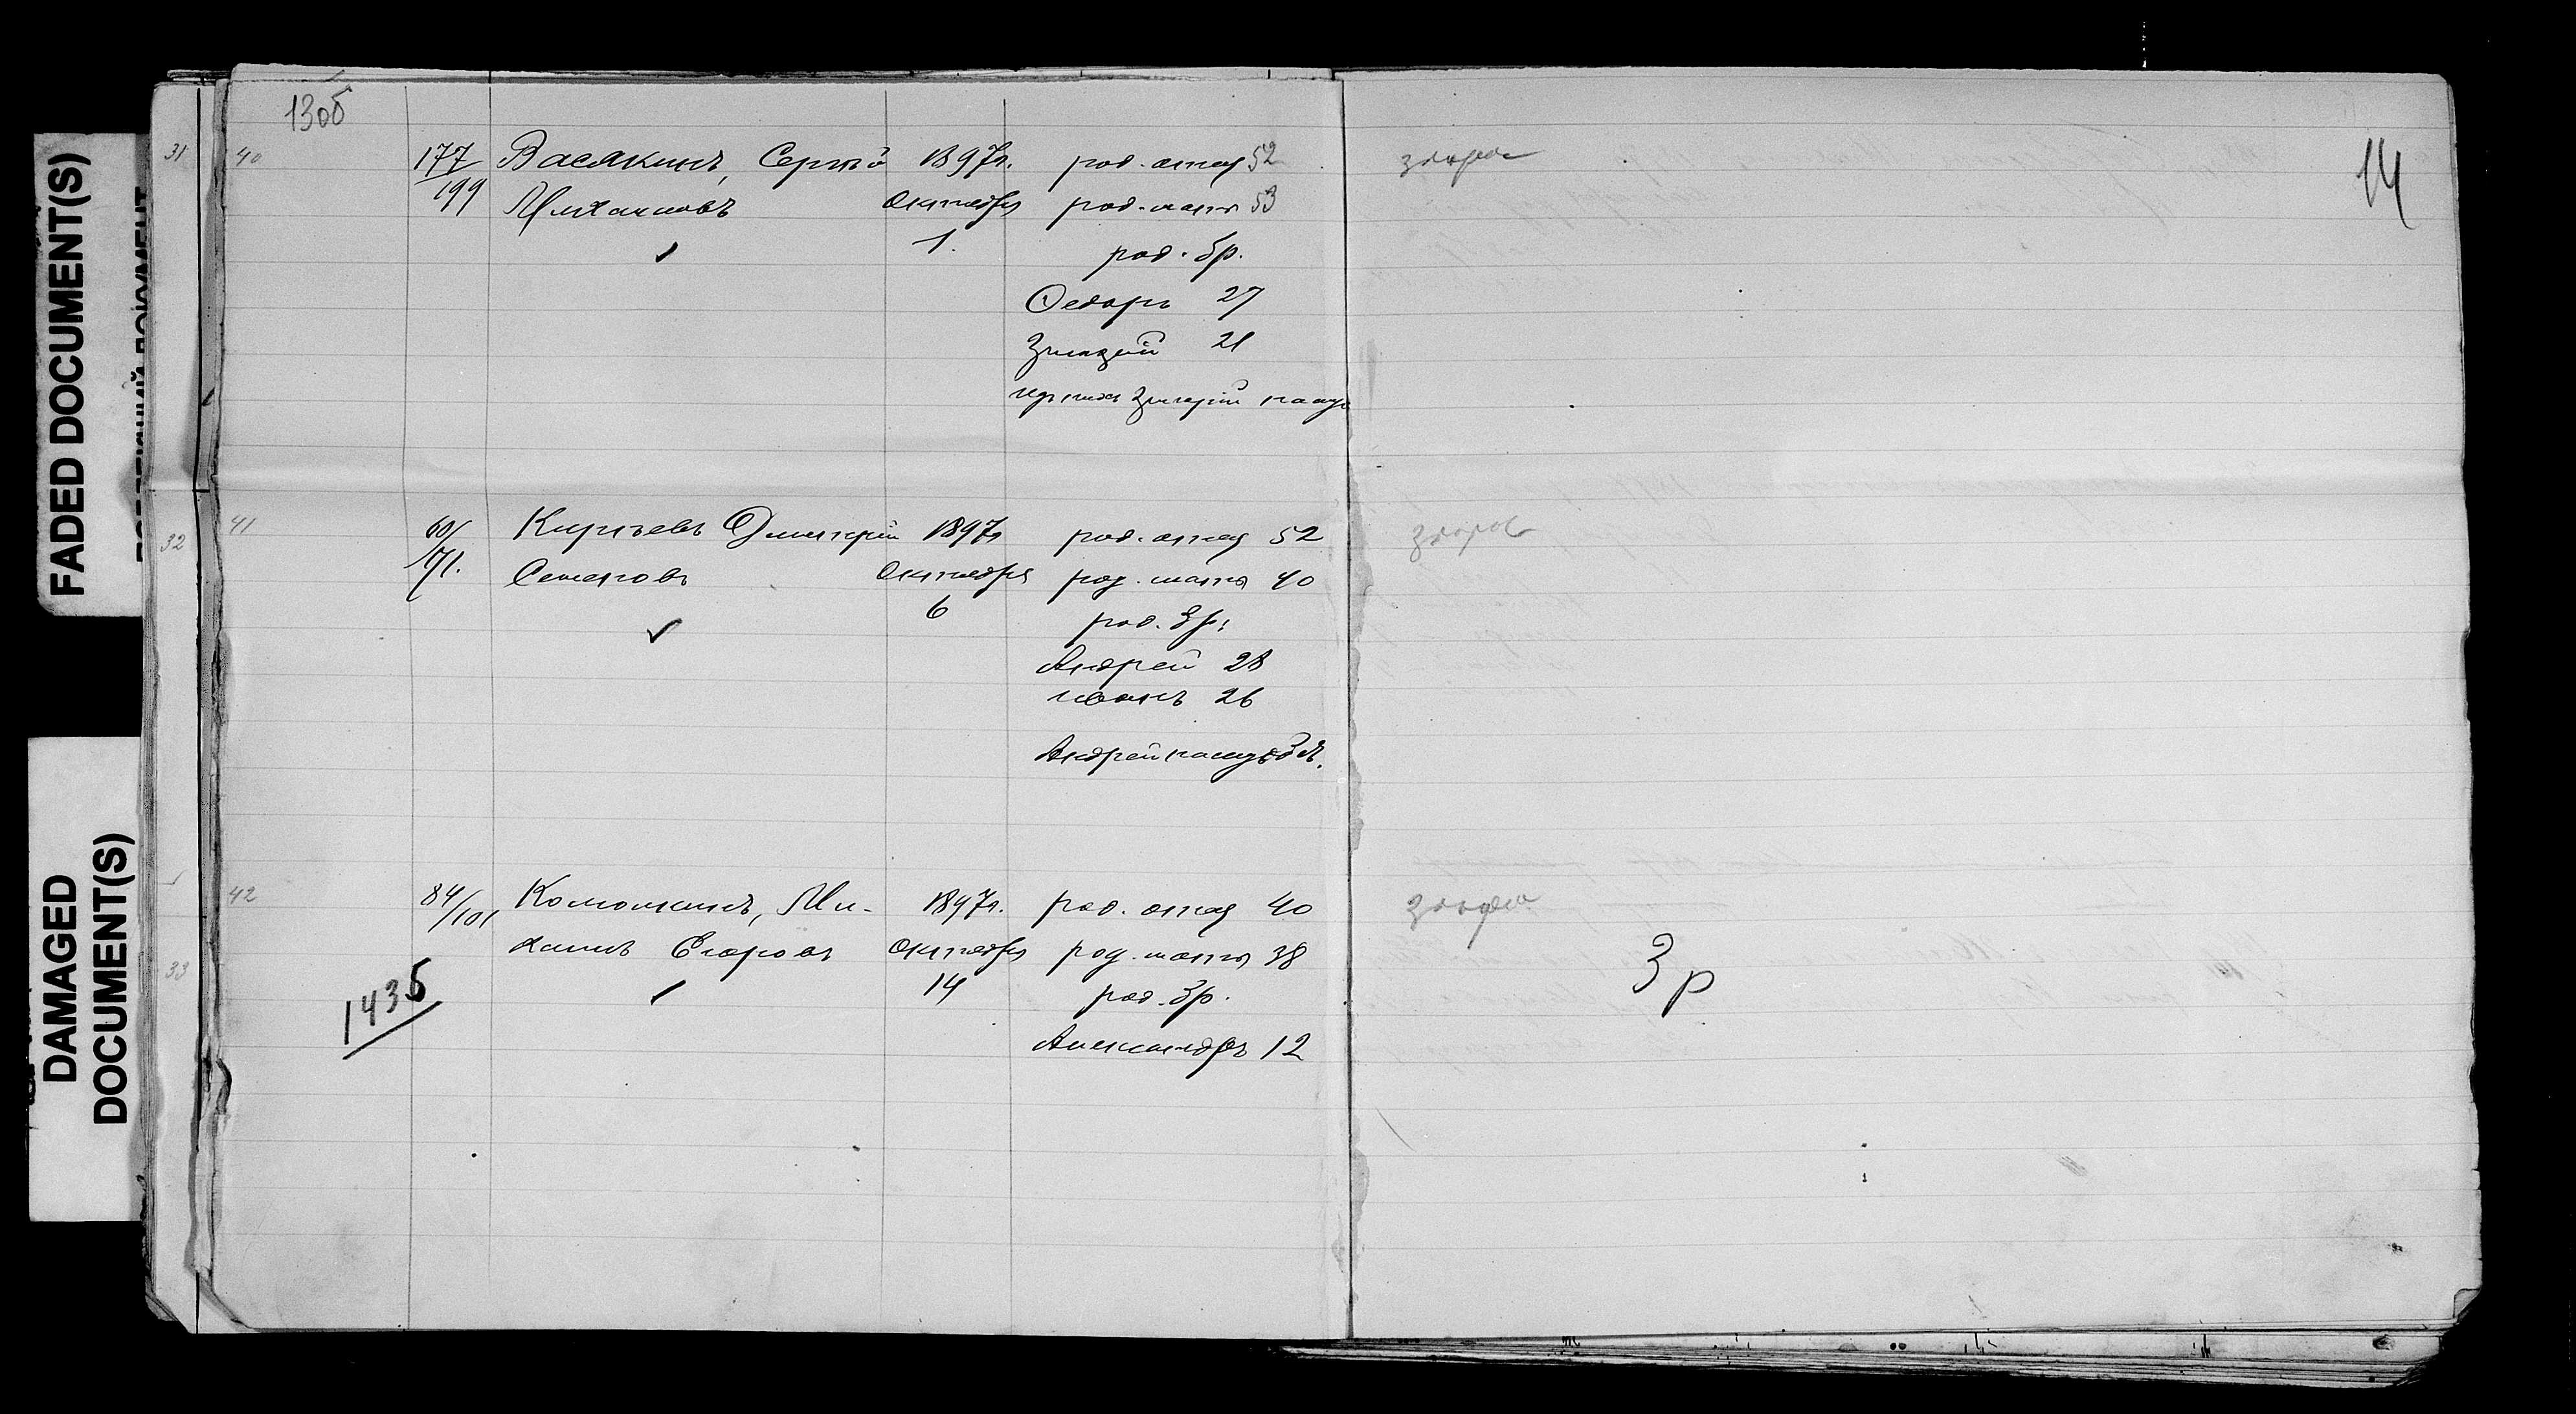 FADED DOCUMENT(S)
DAMAGED
DOCUMENT(S)
130б
14
31 40 177/199 Васякинъ, Сергѣй 1897г. род. отец 52 здоров
Михайловъ Октября род. мать 53
1. род. бр.
Федоръ 27
21
41 60/71. Кирѣевъ Дмитрій 1897г род. отец 52 здоров
32 Семеновъ Октября род. мать 40
6 род. бр.
Андрей 28
Иванъ 26
Андрей
42 84/101 Комолкинъ, Ми- 1897г. род. отец 40 здоров
33 хаилъ Егоровъ Октября род. мать 38 3 р
143б 14 род. бр.
Александръ 12